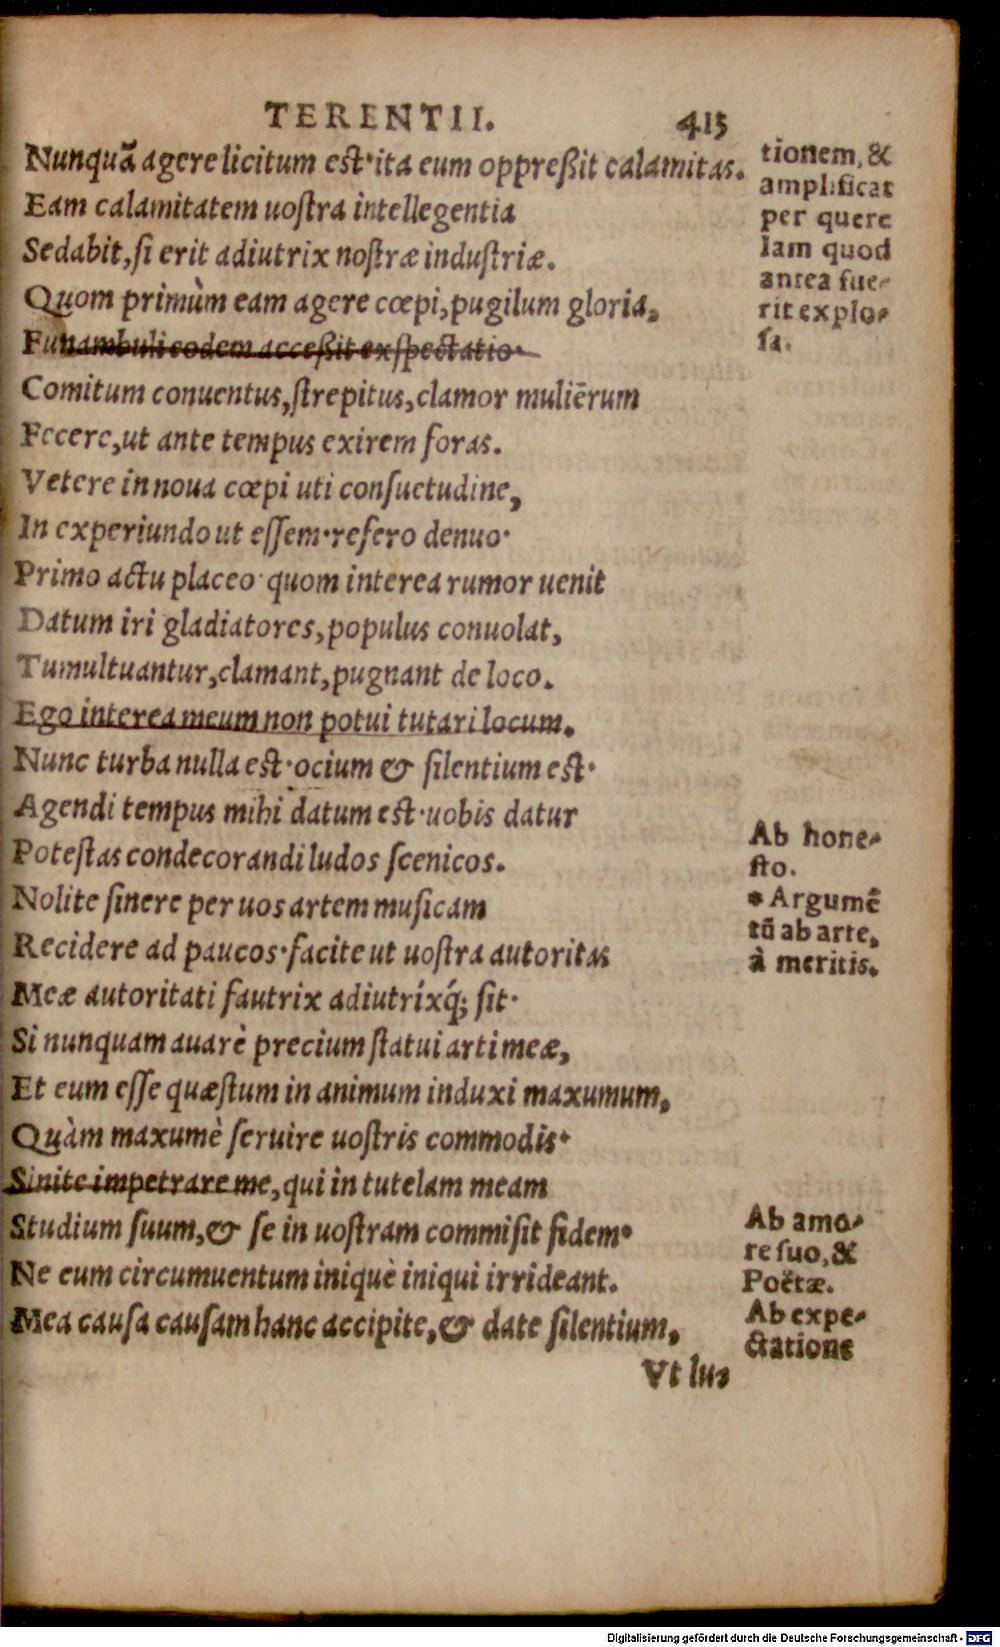 TERENTII. 415
Nunquā agere licitum est·ita eum oppreßit calamitas.
Eam calamitatem uoſtra intellegentia
Sedabit,ſi erit adiutrix noſtræ induſtriæ.
Quom primùm eam agere cœpi,pugilum gloria,
Funambuli eodem acceßit exſpectatio·
Comitum conuentus,ſtrepitus,clamor muliērum
Fecere,ut ante tempus exirem foras.
Vetere in noua cœpi uti conſuetudine,
In experiundo ut eſſem·refero denuo·
Primo actu placeo·quom interea rumor uenit
Datum iri gladiatores,populus conuolat,
Tumultuantur,clamant,pugnant de loco.
Ego interea meum non potui tutari locum.
Nunc turba nulla est·ocium & ſilentium est·
Agendi tempus mihi datum est·uobis datur
Poteſtas condecorandi ludos ſcenicos.
Nolite ſinere per uos artem muſicam
Recidere ad paucos·facite ut uoſtra autoritas
Meæ autoritati fautrix adiutríxq́; ſit·
Si nunquam auarè precium ſtatui arti meæ,
Et eum eſſe quæſtum in animum induxi maxumum,
Quàm maxumè ſeruire uoſtris commodis·
Sinite impetrare me,qui in tutelam meam
Studium ſuum,& ſe in uoſtram commiſit fidem·
Ne eum circumuentum iniquè iniqui irrideant.
Mea cauſa cauſam hanc accipite,& date ſilentium,
Vt lus
tionem, &
amplificat
per quere
lam quod
antea fue-
rit explo-
ſa.
Ab hone-
ſto.
* Argumē
tū ab arte,
à meritis.
Ab amo-
re ſuo, &
Poëtæ.
Ab expe-
ctatione
Digitalisierung gefördert durch die Deutsche Forschungsgemeinschaft - DFG